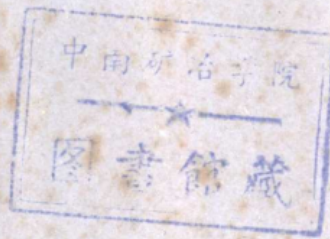 中南矿冶学院
图書館藏